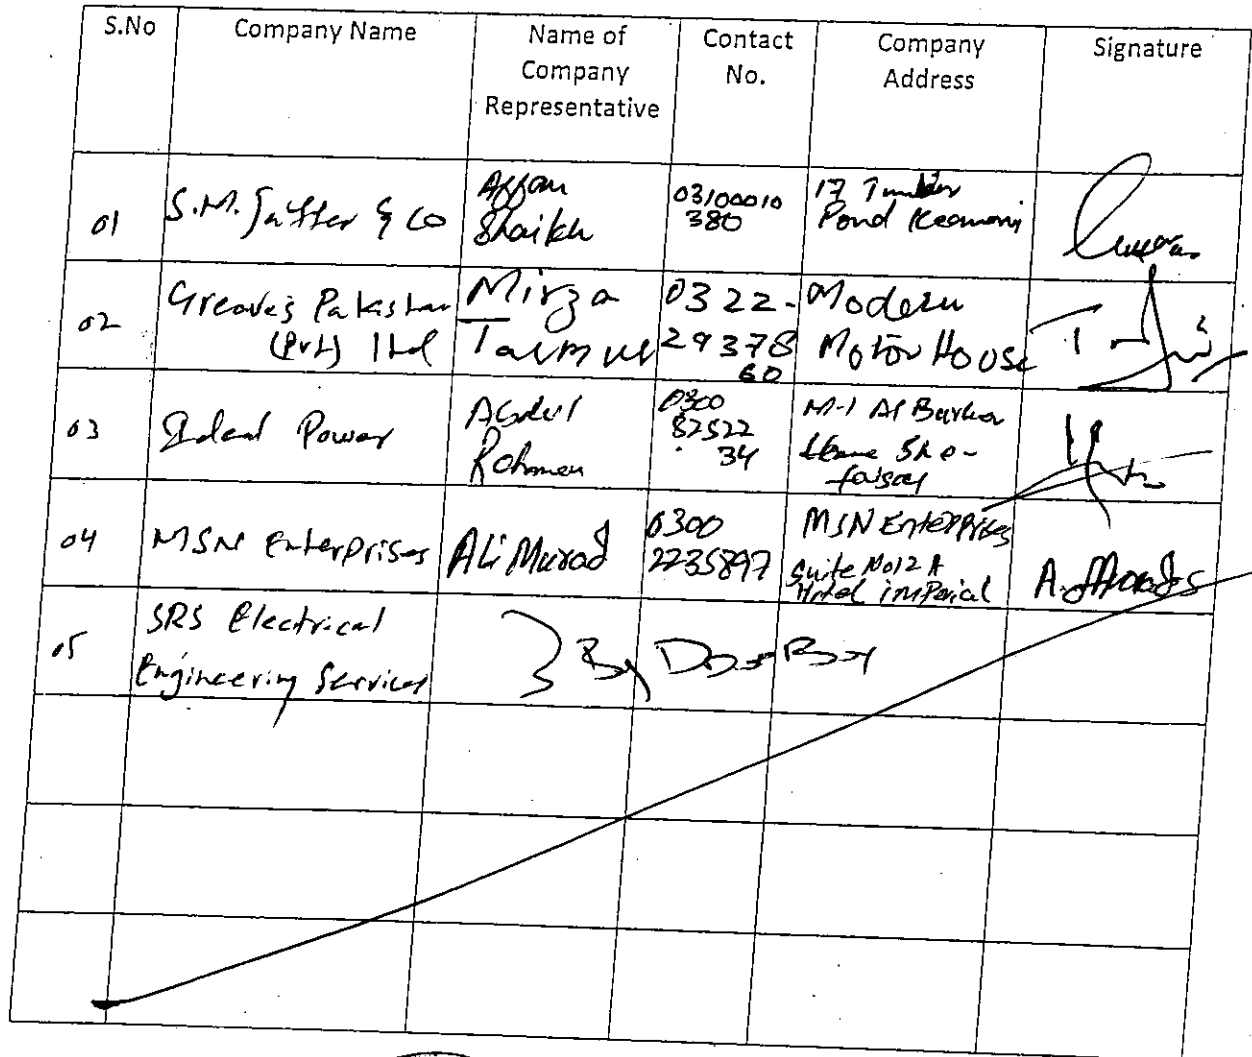 S.No Company Name Name of Company Representative Contact No. Company Address Signature
01 S.M. Jaffer & Co Affan Shaikh 03100010380 17 Timber Pond Keamari
02 Greaves Pakistan (Pvt) Ltd Mirza 0322-2937860 Modern Motor House
03 Ideal Power Abdul Rehman 0300 8252234 M-1 Al Burhan
04 MSN Enterprises Ali Murad 0300 2235897 MSN Enterprises Suite No 12 A Hotel imperial
05 SRS Electrical Engineering Services By